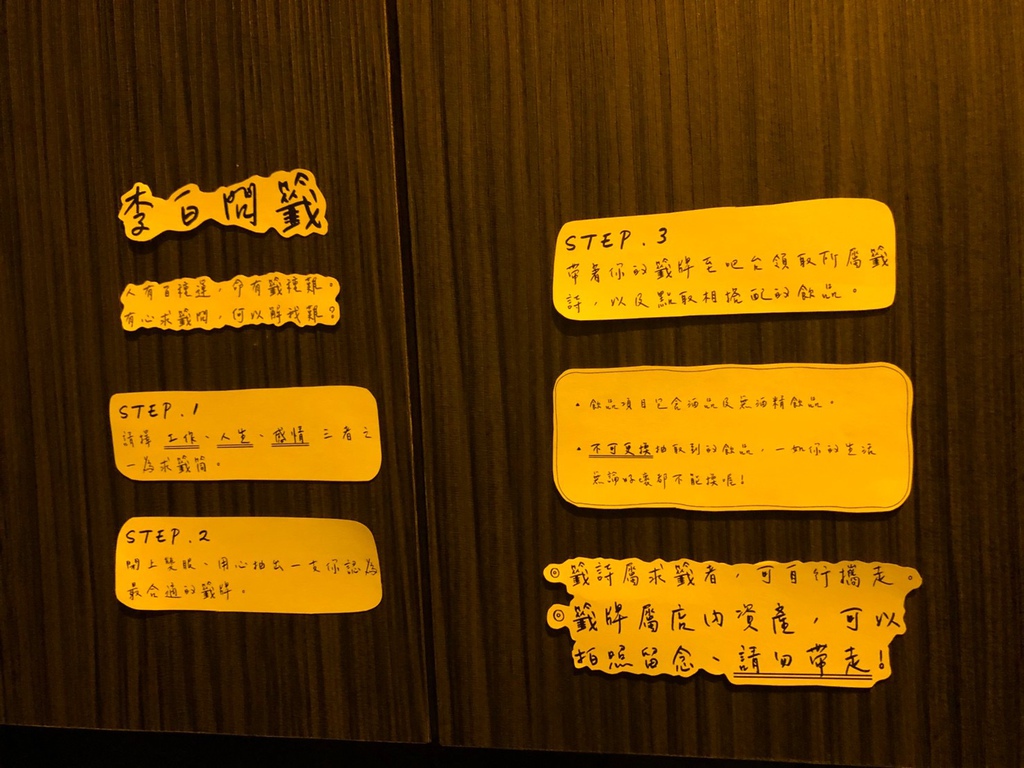 李白問籤
人有百種運，命有籤種艱。
有心求籤問，何以解我艱？
STEP.1
請擇 工作、人生、感情 三者之
一為求籤筒。
STEP.2
閉上雙眼、用心抽出一支你認為
最合適的籤牌。
STEP.3
帶著你的籤牌至吧台領取所屬籤
詩，以及點取相搭配的飲品。
• 飲品項目包含酒品及無酒精飲品。
• 不可更換抽取到的飲品，一如你的生活
無論好壞都不能換喔！
◎籤詩屬求籤者，可自行攜走。
◎籤牌屬店內資產，可以
拍照留念、請勿帶走！